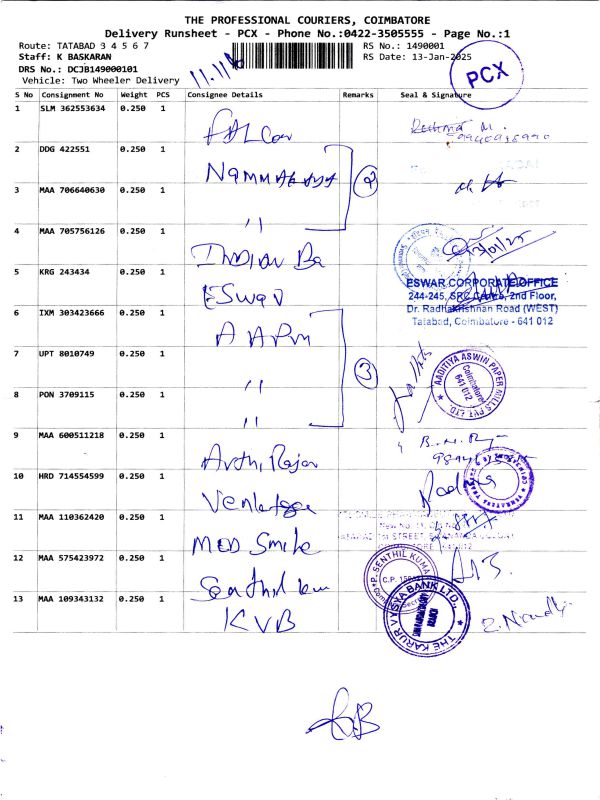 THE PROFESSIONAL COURIERS, COIMBATORE
Delivery Runsheet - PCX - Phone No.:0422-3505555 - Page No.:1
Route: TATABAD 3 4 5 6 7
RS No.: 1490001
Staff: K BASKARAN
RS Date: 13-Jan-2025
DRS No.: DCJB149000101
Vehicle: Two Wheeler Delivery
PCX
S No Consignment No Weight PCS Consignee Details Remarks Seal & Signature
1 SLM 362553634 0.250 1 FALCon
2 DDG 422551 0.250 1
2
3 MAA 706640630 0.250 1 "
4 MAA 705756126 0.250 1 Indian Ba
5 KRG 243434 0.250 1 ESwar
ESWAR CORPORATE OFFICE
244-245, SRC Centre, 2nd Floor,
Dr. Radhakrishnan Road (WEST)
Tatabad, Coimbatore - 641 012
6 IXM 303423666 0.250 1
7 UPT 8010749 0.250 1 "
3
AADITIYA ASWIN PAPER MILLS PVT LTD.
Coimbatore
641 012
8 PON 3709115 0.250 1 "
9 MAA 600511218 0.250 1 Arthi Rajan
10 HRD 714554599 0.250 1
11 MAA 110362420 0.250 1 MED Smile
12 MAA 575423972 0.250 1 Senthil kum
P. SENTHIL KUMAR
13 MAA 109343132 0.250 1 KVB
THE KARUR VYSYA BANK LTD.,